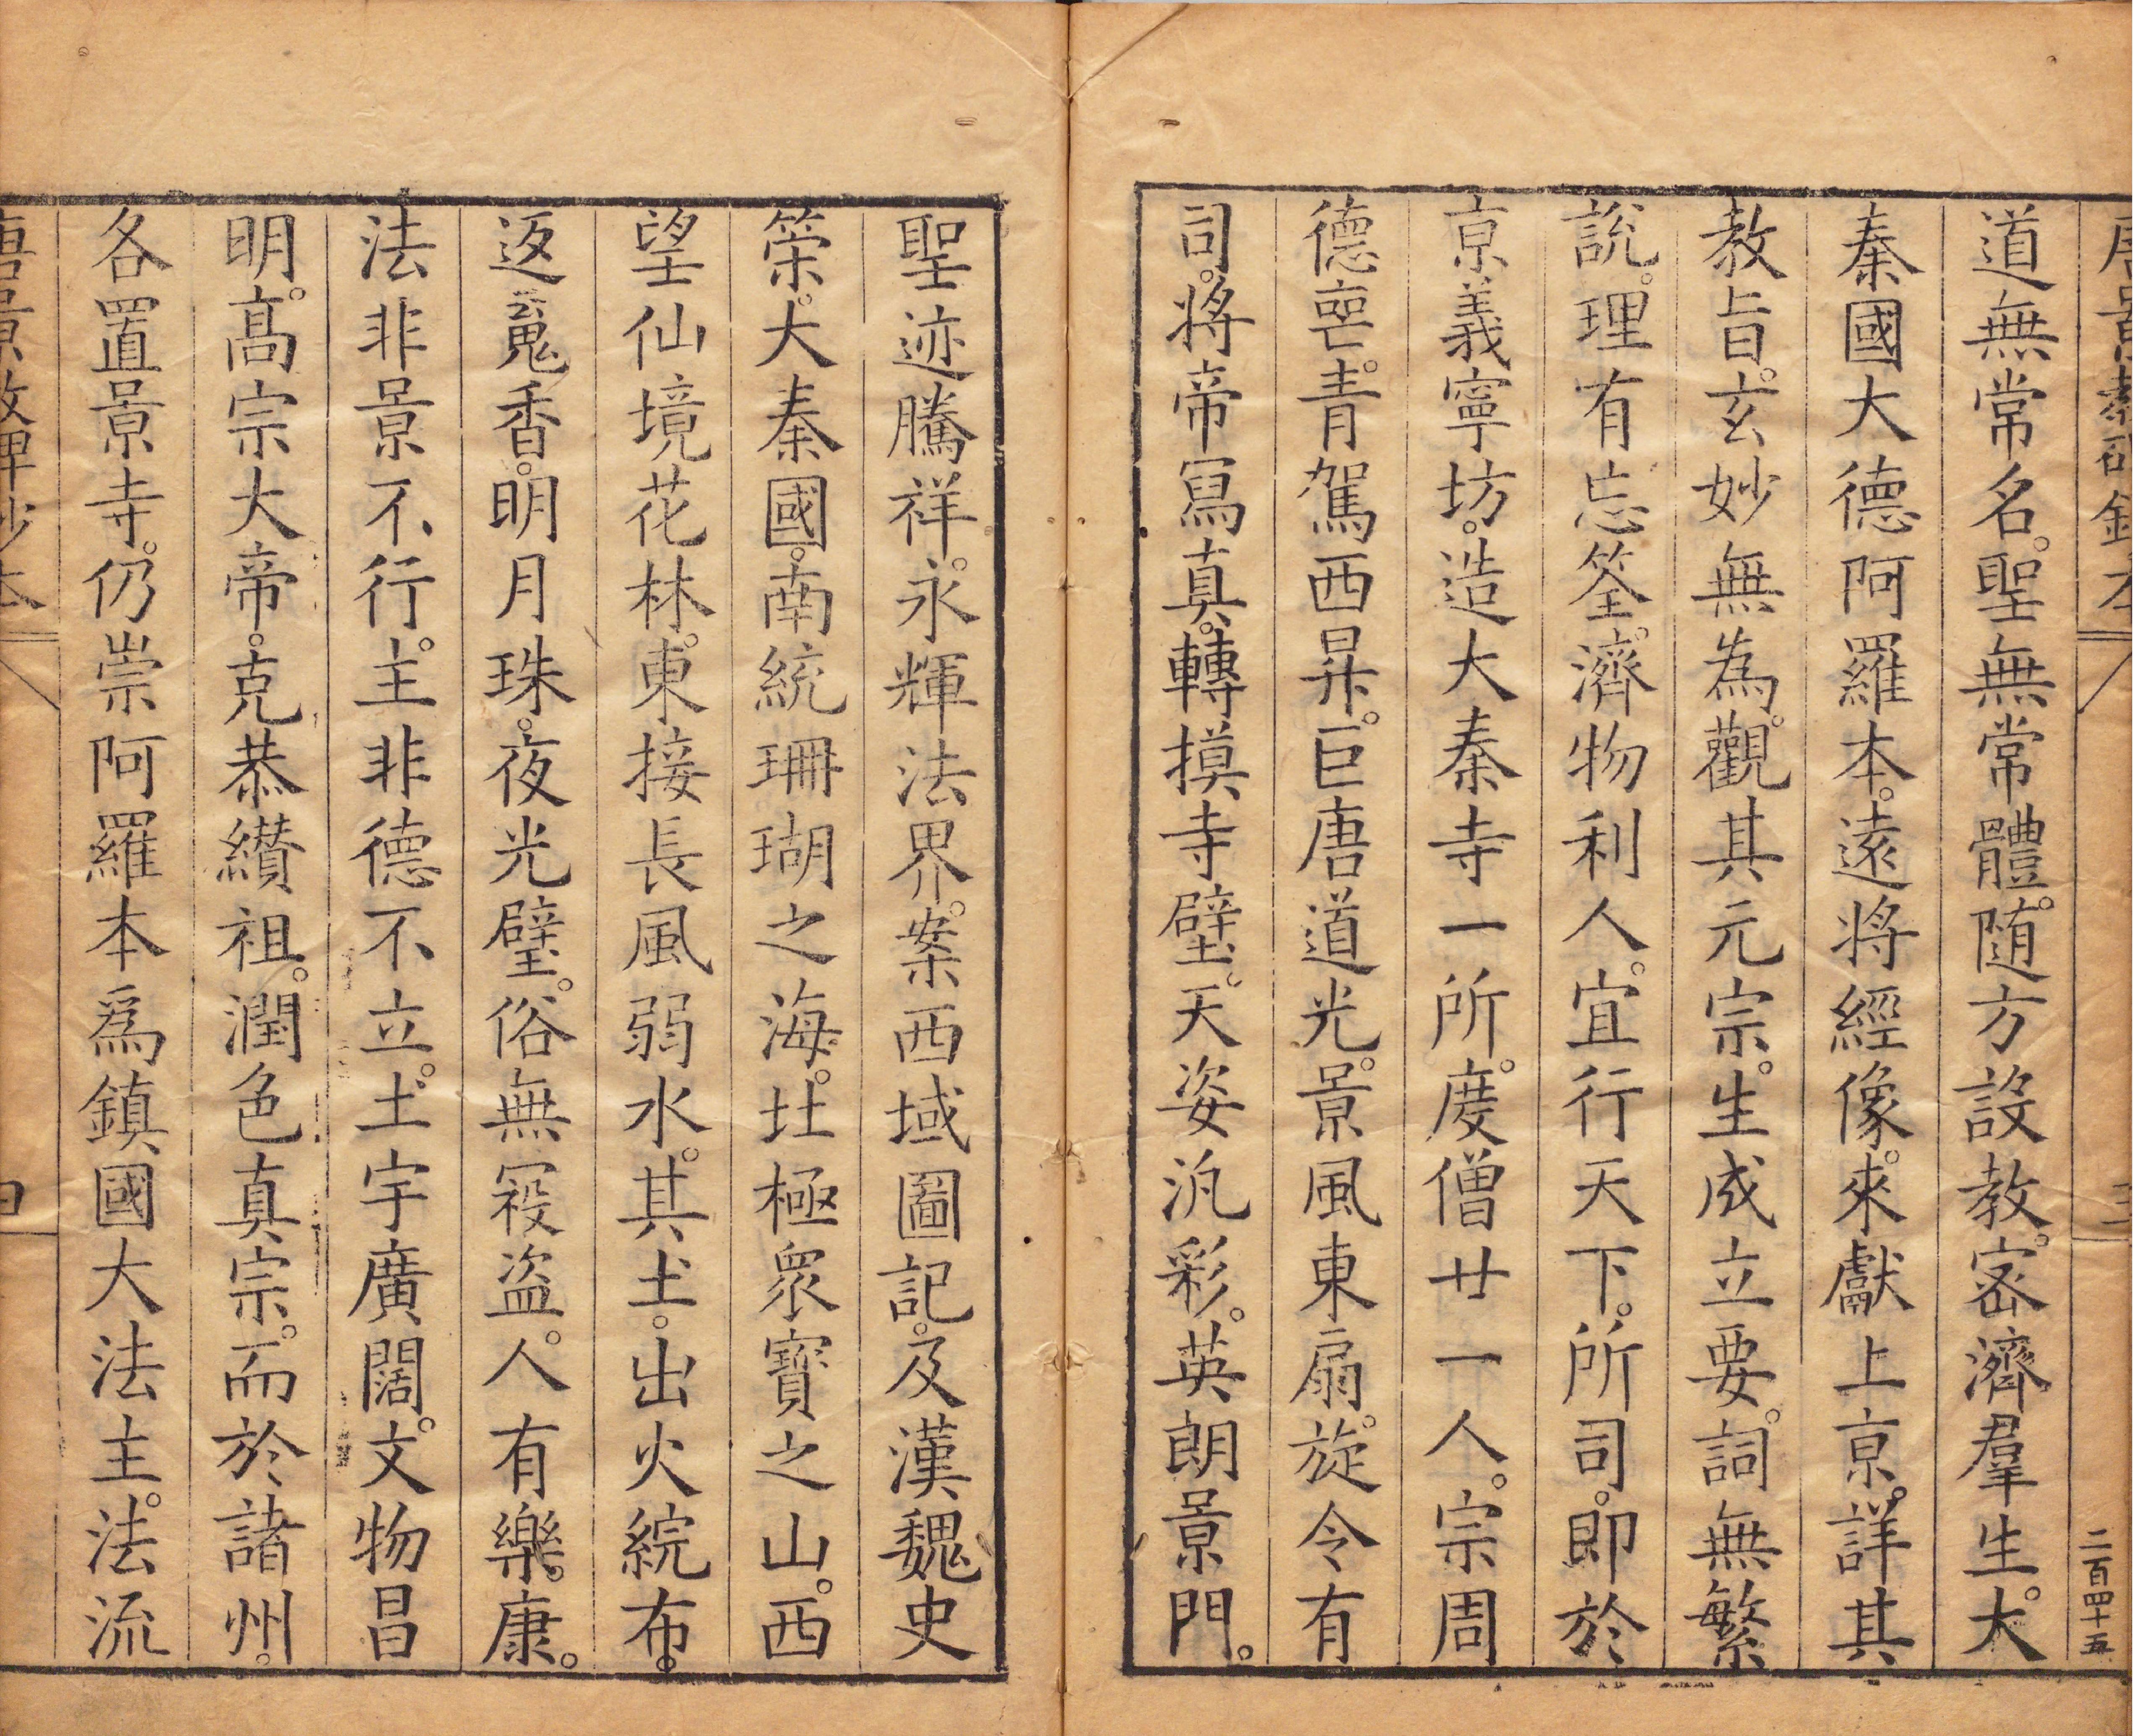 二百四十五
道無常名。聖無常體。随方設教。密濟羣生。大
秦國大德阿羅本。遠將經像。來獻上京。詳其
教旨。玄妙無為。觀其元宗。生成立要。詞無繁
說。理有忘筌。濟物利人。宜行天下。所司。即於
京義寧坊。造大秦寺一所。度僧廿一人。宗周
德喪。青駕西昇。巨唐道光。景風東扇。旋令有
司。將帝寫真。轉摸寺壁。天姿汎彩。英朗景門。
聖迹騰祥。永輝法界。案西域圖記。及漢魏史
策。大秦國。南統珊瑚之海。北極眾寶之山。西
望仙境花林。東接長風弱水。其土。出火綄布。
返魂香。明月珠。夜光璧。俗無寇盜。人有樂。康。
法非景不行。主非德不立。土宇廣闊。文物昌
明。高宗大帝。克恭纘祖。潤色真宗。而於諸州。
各置景寺。仍崇阿羅本爲鎮國大法主。法流
唐景教碑